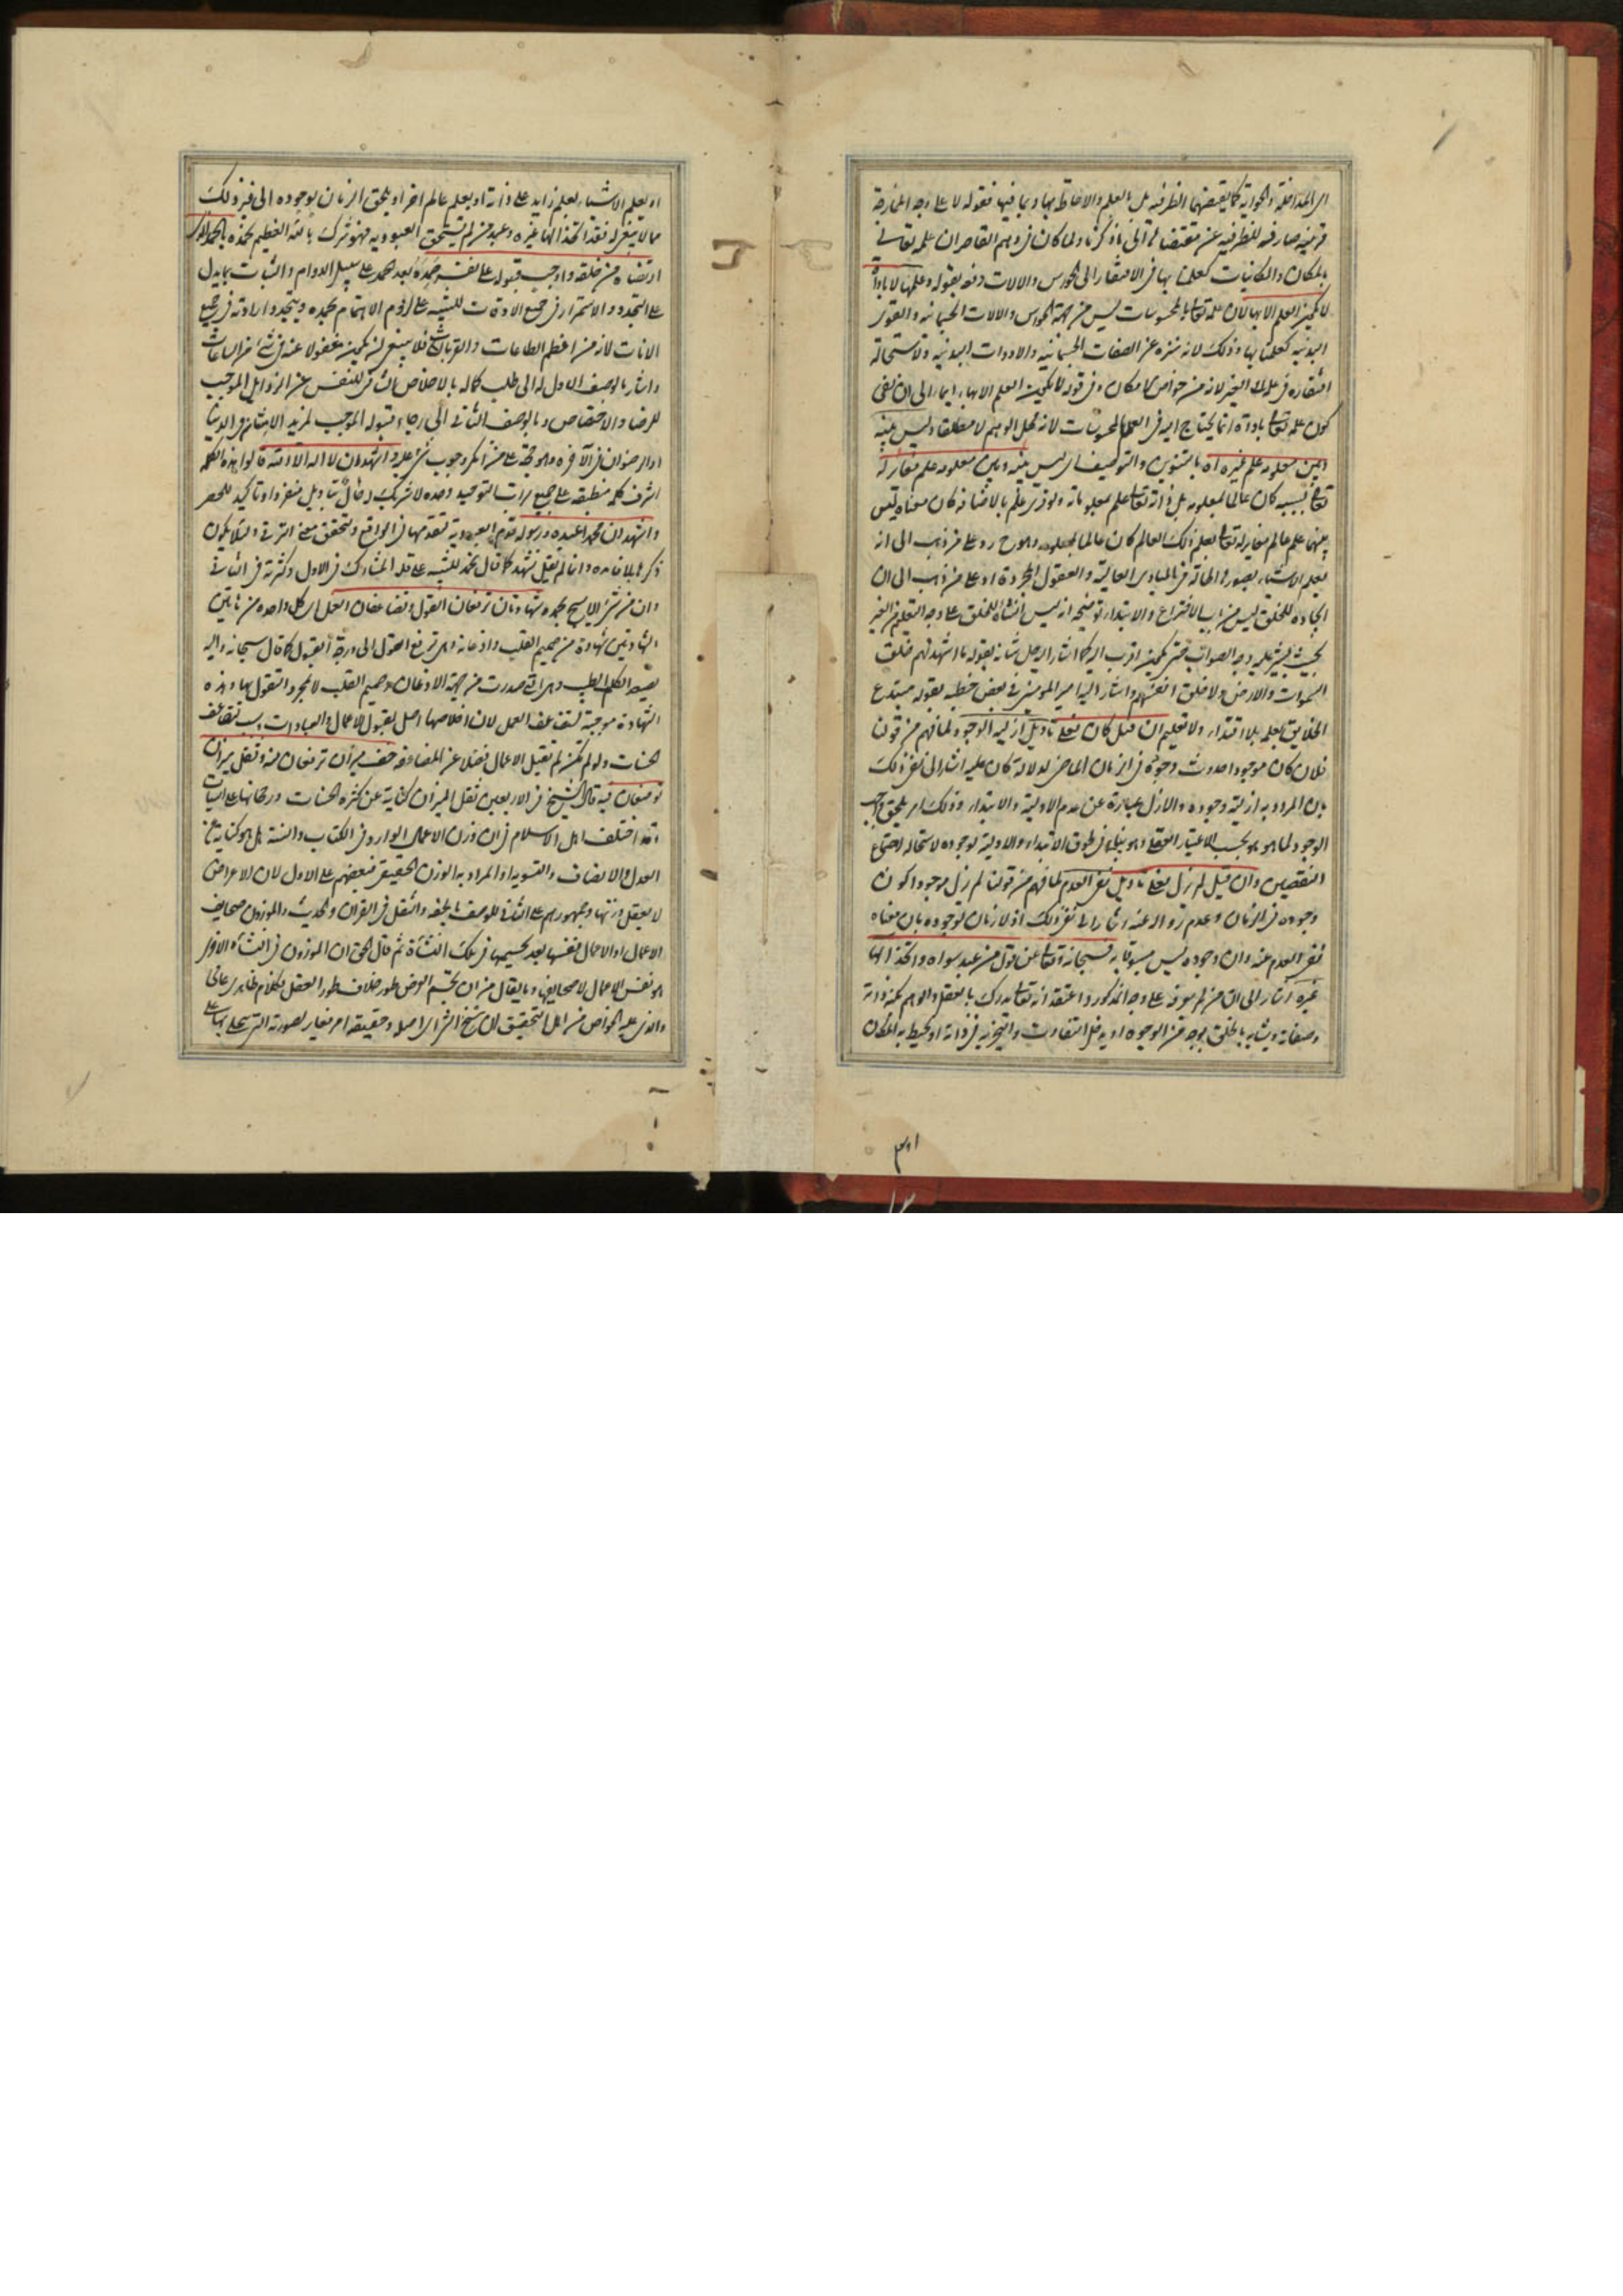 اى المداخلة والحواية كما يقتضيها الظرفية بل بالعلم والاحاطة بها وبما فيها فقوله لا على وجه الممازجة
قرينة صارفة للظرفية عن مقتضاها الى ما ذكرنا ولما كان فى وهم القاصران علمه تعالى
بالمكان والمكانيات كعلمنا بها فى الافتقار الى الحواس والالات دفعه بقوله وعلمها لا باداة
لا يكون العلم الا بها لان علمه تعالى بالمحسوسات ليس من جهة الحواس والالات الجسمانية والقوى
البدنية كعلمنا بها وذلك لانه منزه عن الصفات الجسمانية والادوات البدنية ولاستحالة
افتقاره فى علمه الى الغير لانه من خواص الامكان وفى قوله لا يكون العلم الا بها ايماء الى ان نفى
كون علمه تعالى باداة انما يحتاج اليه فى العلم بالمحسوسات لانه محل الوهم لا مطلقا وليس بينه
وبين معلومه علم غيره اه بالتنوين والتوصيف اى ليس بينه وبين معلومه علم مغاير له
تعالى بسببه كان عالما بمعلومه بل ذاته تعالى علم بمعلوماته ولو قرئ علم بالاضافة كان معناه ليس
بينهما علم عالم مغاير له تعالى بعلم ذلك العالم كان عالما بمعلومه وهو ح رد على من ذهب الى انه
يعلم الاشياء بصورها الحالة فى المبادى العالية والعقول المجردة او على من ذهب الى ان
ايجاده للخلق ليس من باب الاختراع والابتداء توضيحه انه ليس انشاؤه للخلق على وجه التعليم من الغير
بحيث يشير عليه وجه الصواب حتى يكون اقرب اليه كما اشار اليه جل شانه بقوله ما اشهدتهم خلق
السموات والارض ولا خلق انفسهم واشار اليه امير المؤمنين فى بعض خطبه بقوله مبتدع
الخلايق بعلمه بلا اقتداء ولا تعليم ان قيل كان فعلى تاويل ازلية الوجود لما فهم من قولن
فلان كان موجودا حدوث وجوده فى الزمان الماضى لدلالة كان عليه اشار الى نفى ذلك
بان المراد به ازلية وجوده والازل عبارة عن عدم الاولية والابتداء وذلك امر يلحق واجب
الوجود لما هو هو بحسب الاعتبار العقلى وهو ينافى لحوق الابتداء والاولية لوجوده لاستحالة اجتماع
النقيضين وان قيل لم يزل فعلى تاويل نفى العدم لما فهم من قولنا لم يزل موجودا كون
وجوده فى الزمان وعدم زواله عنه اشار الى نفى ذلك اذ لا زمان لوجوده بان معناه
نفى العدم عنه وان وجوده ليس مسبوقا به فسبحانه وتعالى عن قول من عبد سواه واتخذ الها
غيره اشار الى ان من لم يعرفه على وجه المذكور واعتقد انه تعالى يدرك بالعقل والوهم كنه ذاته
وصفاته ويشابه بالخلق بوجه من الوجوه او يدخل التفاوت والتجزية فى ذاته او يحيط به المكان
او يعلم الاشياء بعلم زايد على ذاته او بعلم عالم اخر او يلحق الزمان بوجوده الى غير ذلك
مما لا ينبغى له فقد اتخذ الها غيره وعبد من لم يستحق العبودية فهو شرك بالله العظيم نحمده بالحمد الذى
ارتضاه من خلقه واوجب قبوله على نفسه حمده بعد حمد على سبيل الدوام والثبات بما يدل
على التجدد والاستمرار فى جميع الاوقات للتنبيه على لزوم الاهتمام بحمده وتجدد ارادته فى جميع
الانات لانه من اعظم الطاعات والقربات فلا ينبغى ان يكون غفولا عنه فى شئ من الساعات
واشار بالوصف الاول له الى طلب كماله بالاخلاص المنافى للنفس عن الرذايل الموجب
للرضا والاختصاص وبالوصف الثانى الى رجاء قبوله الموجب لمزيد الامتنان فى الدنيا
اوالرضوان فى الآخرة وهو حجة على من انكر وجوب شئ عليه واشهد ان لا اله الا الله قالوا هذه الكلمة
اشرف كلمة منطبقة على جميع مراتب التوحيد وحده لا شريك له حال بتاويل منفردا وتاكيد للحصر
واشهد ان محمدا عبده ورسوله قدم العبودية لتقدمها فى الواقع ولتحقق معنى الترقى ولئلا يكون
ذكرها بلا فائدة وانما لم يقل نشهد كما قال نحمد للتنبيه على قلة المشارك فى الاول وكثرته فى الثانى
وان من شئ الا يسبح بحمده شهادتان ترفعان القول وتضاعفان العمل اى كل واحدة من هاتين
الشهادتين شهادة من صميم القلب واذعانه وهى ترفع القول الى درجة القبول كما قال سبحانه واليه
يصعد الكلم الطيب وهى التى صدرت من جهة الاذعان وصميم القلب لا بمجرد التقول بها وهذه
الشهادة موجبة لتضاعف العمل لان اخلاصها اصل لقبول الاعمال والعبادات وسبب لتضاعف
الحسنات ولو لم تكن لم تقبل الاعمال فضلا عن المضاعفة خف ميزان ترفعان منه وثقل ميزان
توضعان فيه قال الشيخ فى الاربعين ثقل الميزان كناية عن كثرة الحسنات ورجحانها على السيئات
وقد اختلف اهل الاسلام فى ان وزن الاعمال الوارد فى الكتاب والسنة هل هو كناية عن
العدل والانصاف والتسوية او المراد به الوزن الحقيقى فبعضهم على الاول لان الاعراض
لا يعقل وزنها وجمهورهم على الثانى للوصف بالخفة والثقل فى القران والحديث والموزون صحايف
الاعمال او الاعمال نفسها بعد تجسيمها فى تلك النشأة ثم قال الحق ان الموزون فى النشأة الاخرى
هو نفس الاعمال لا صحايفها وما يقال من ان تجسم العرض طور خلاف طور العقل فكلام ظاهرى عامى
والذى عليه الخواص من اهل التحقيق ان سنخ الشئ اى اصله وحقيقته امر مغاير لصورته التى يتجلى بها على